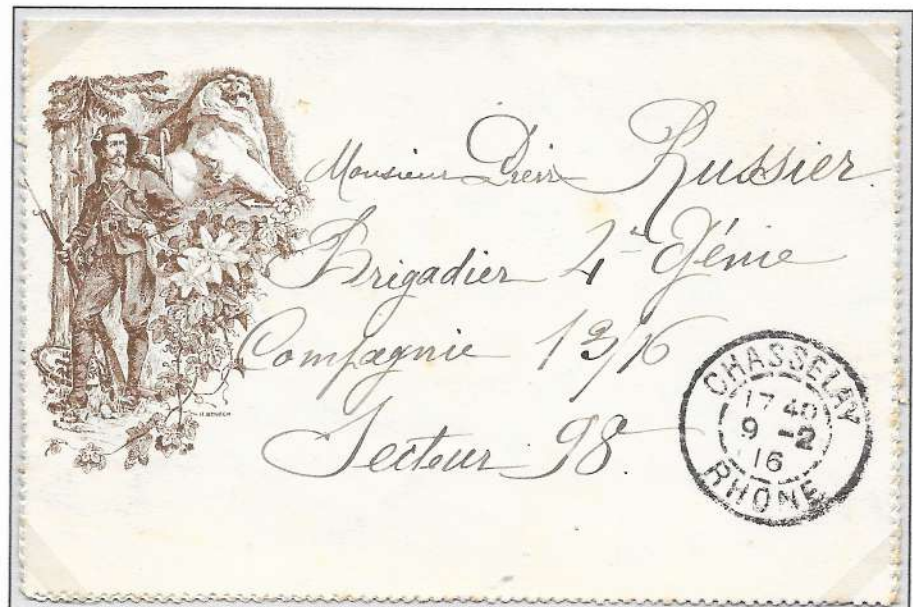 Monsieur Pierre Russier
Brigadier 4e Génie
Compagnie 13/16
Secteur 98.
CHASSELAY
17 40
9 -2
16
RHONE